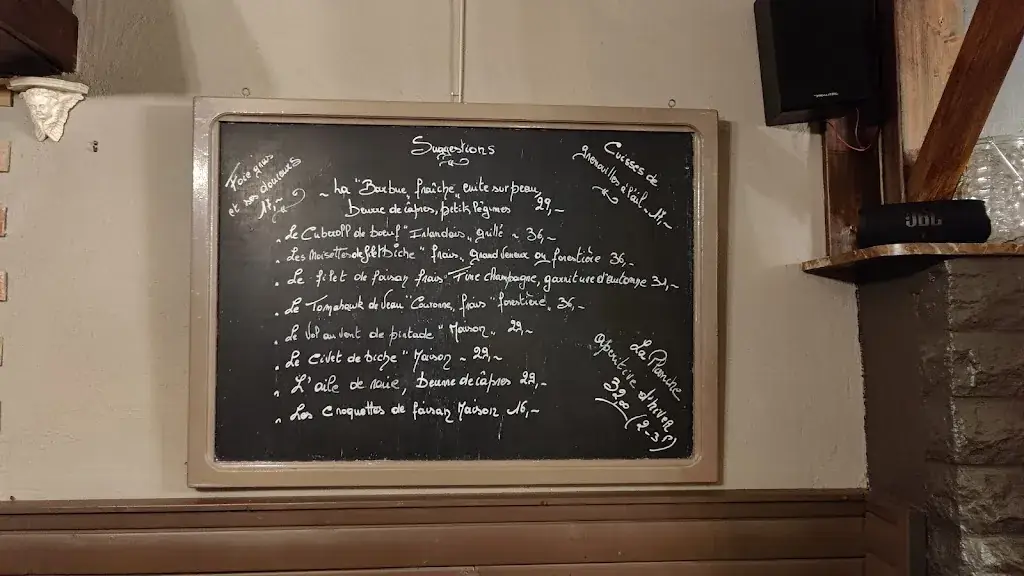 Suggestions
Foie gras
et ses douceurs
17,-
Cuisses de
grenouilles à l'ail 17,-
La "Barbue, fraîche" cuite sur peau
Beurre de câpres, petits légumes 29,-
Le Cuberoll de boeuf "Irlandais" grillé ~ 36,-
Les Noisettes de filet Biche "frais, grand veneur ou forestière 36,-
Le filet de faisan frais "Fine champagne, garniture d'automne 32,-
Le Tomahawk de veau frais forestière, 36,-
Le Vol au vent de pintade "Maison" 29,-
Le Civet de biche "Maison ~ 29,-
L'aile de raie, Beurre de câpres 29,-
Les Croquettes de faisan Maison 16,-
La Planche
apéritive d'hiver
32,00 (2-3P)
JBL